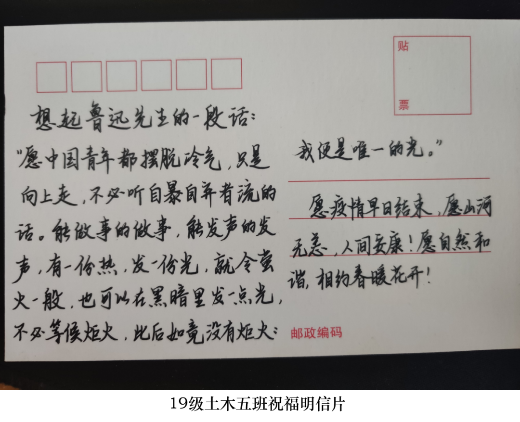 贴
票
想起鲁迅先生的一段话：
“愿中国青年都摆脱冷气，只是
向上走，不必听自暴自弃者流的
话。能做事的做事，能发声的发
声，有一份热，发一份光，就令萤
火一般，也可以在黑暗里发一点光，
不必等候炬火，此后如竟没有炬火：
我便是唯一的光。”
愿疫情早日结束，愿山河
无恙，人间安康！愿自然和
谐，相约春暖花开！
邮政编码
19级土木五班祝福明信片